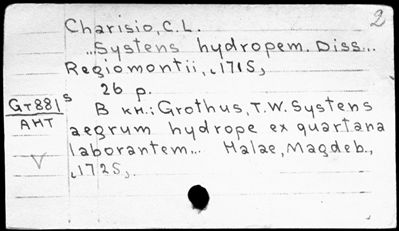 2
Charisio, C. L.
...Systens hydropem. Diss...
Regiomontii, „1715„
26 p.
Gт881 s
АНТ
V
В кн.: Grothus, T. W. Systens
aegrum hydrope ex quartana
laborantem... Halae, Magdeb.,
„1725„.